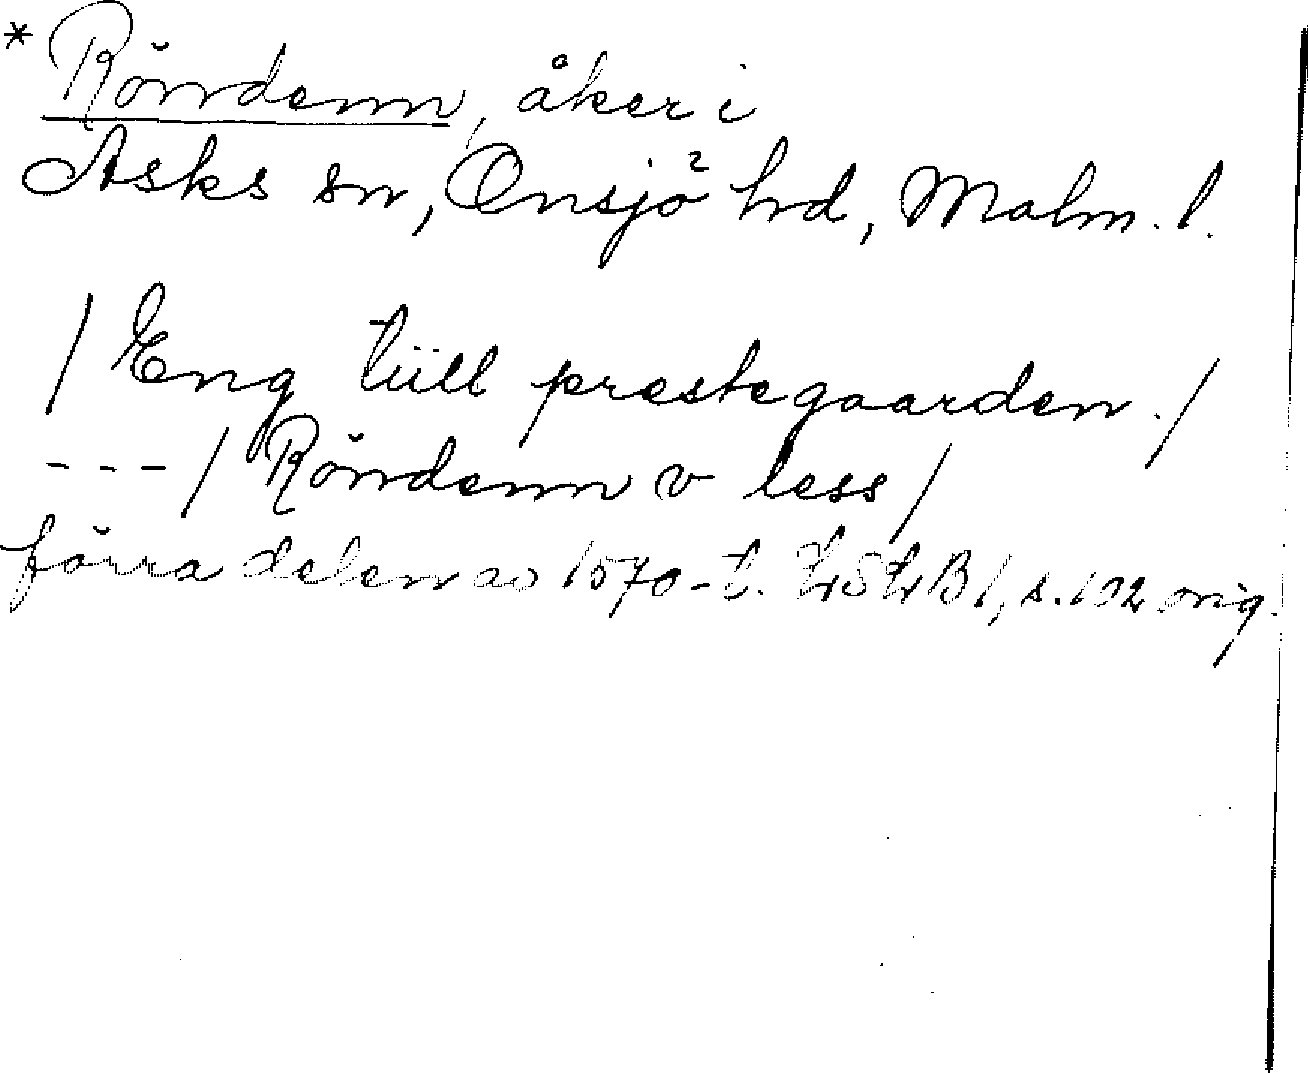 * Rönndenn, åker i
Asks sn, Onsjö hd, Malm. l.
/ Eng tüll prestegaarden. /
--- / Rönndenn v less /
förra delen av 1570-t. LSLB1, s. 102 orig.